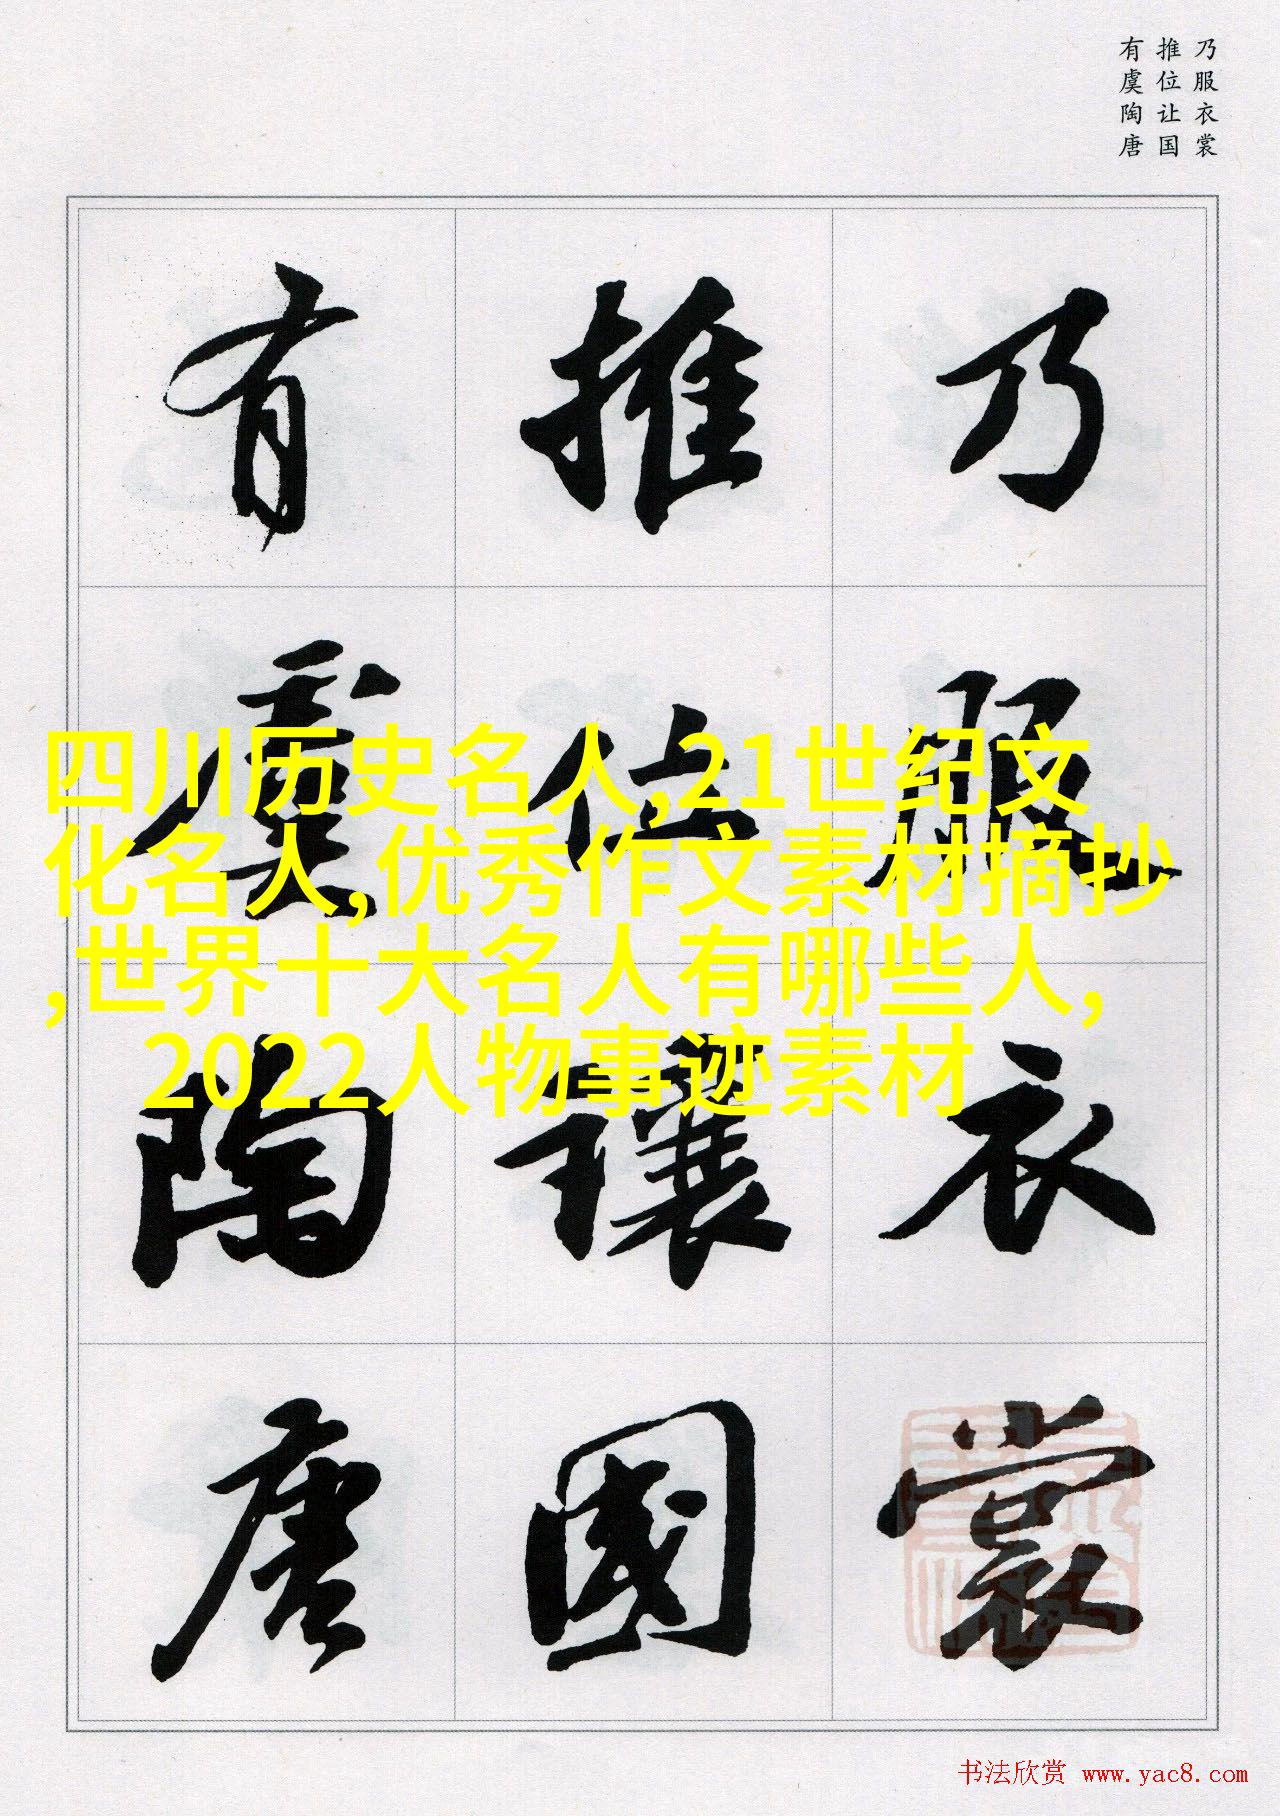 乃服衣裳
推位让国
有虞陶唐
乃服衣裳
推位讓國
有虞陶唐
四川历史名人,21世纪文
化名人,优秀作文素材摘抄
,世界十大名人有哪些人,
2022人物事迹素材
书法欣赏 www.yac8.com